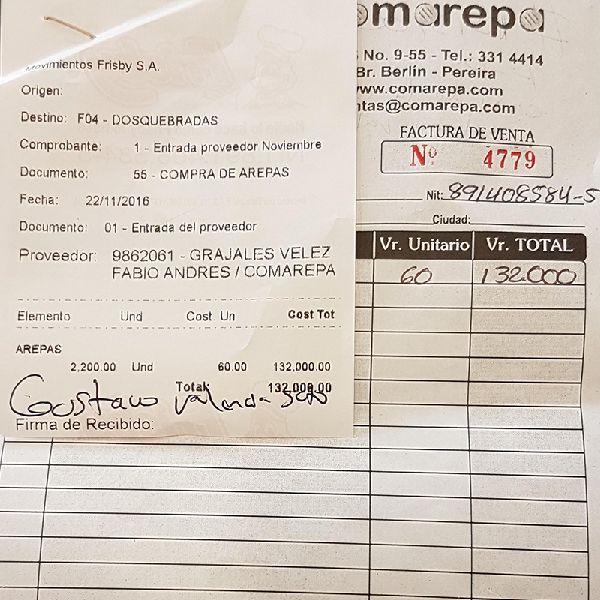 Movimientos Frisby S.A.
Origen:
Destino: F04 - DOSQUEBRADAS
Comprobante: 1 - Entrada proveedor Noviembre
Documento: 55 - COMPRA DE AREPAS
Fecha: 22/11/2016
Documento: 01 - Entrada del proveedor
Proveedor: 9862061 - GRAJALES VELEZ
FABIO ANDRES / COMAREPA
Elemento Und Cost Un Cost Tot
AREPAS
2,200.00 Und 60.00 132,000.00
Total: 132,000.00
Gustavo
Firma de Recibido:
omarepa
No. 9-55 - Tel.: 331 4414
Br. Berlín - Pereira
www.comarepa.com
ntas@comarepa.com
FACTURA DE VENTA
Nº 4779
Nit: 891408584-5
Ciudad:
Vr. Unitario Vr. TOTAL
60 132.000